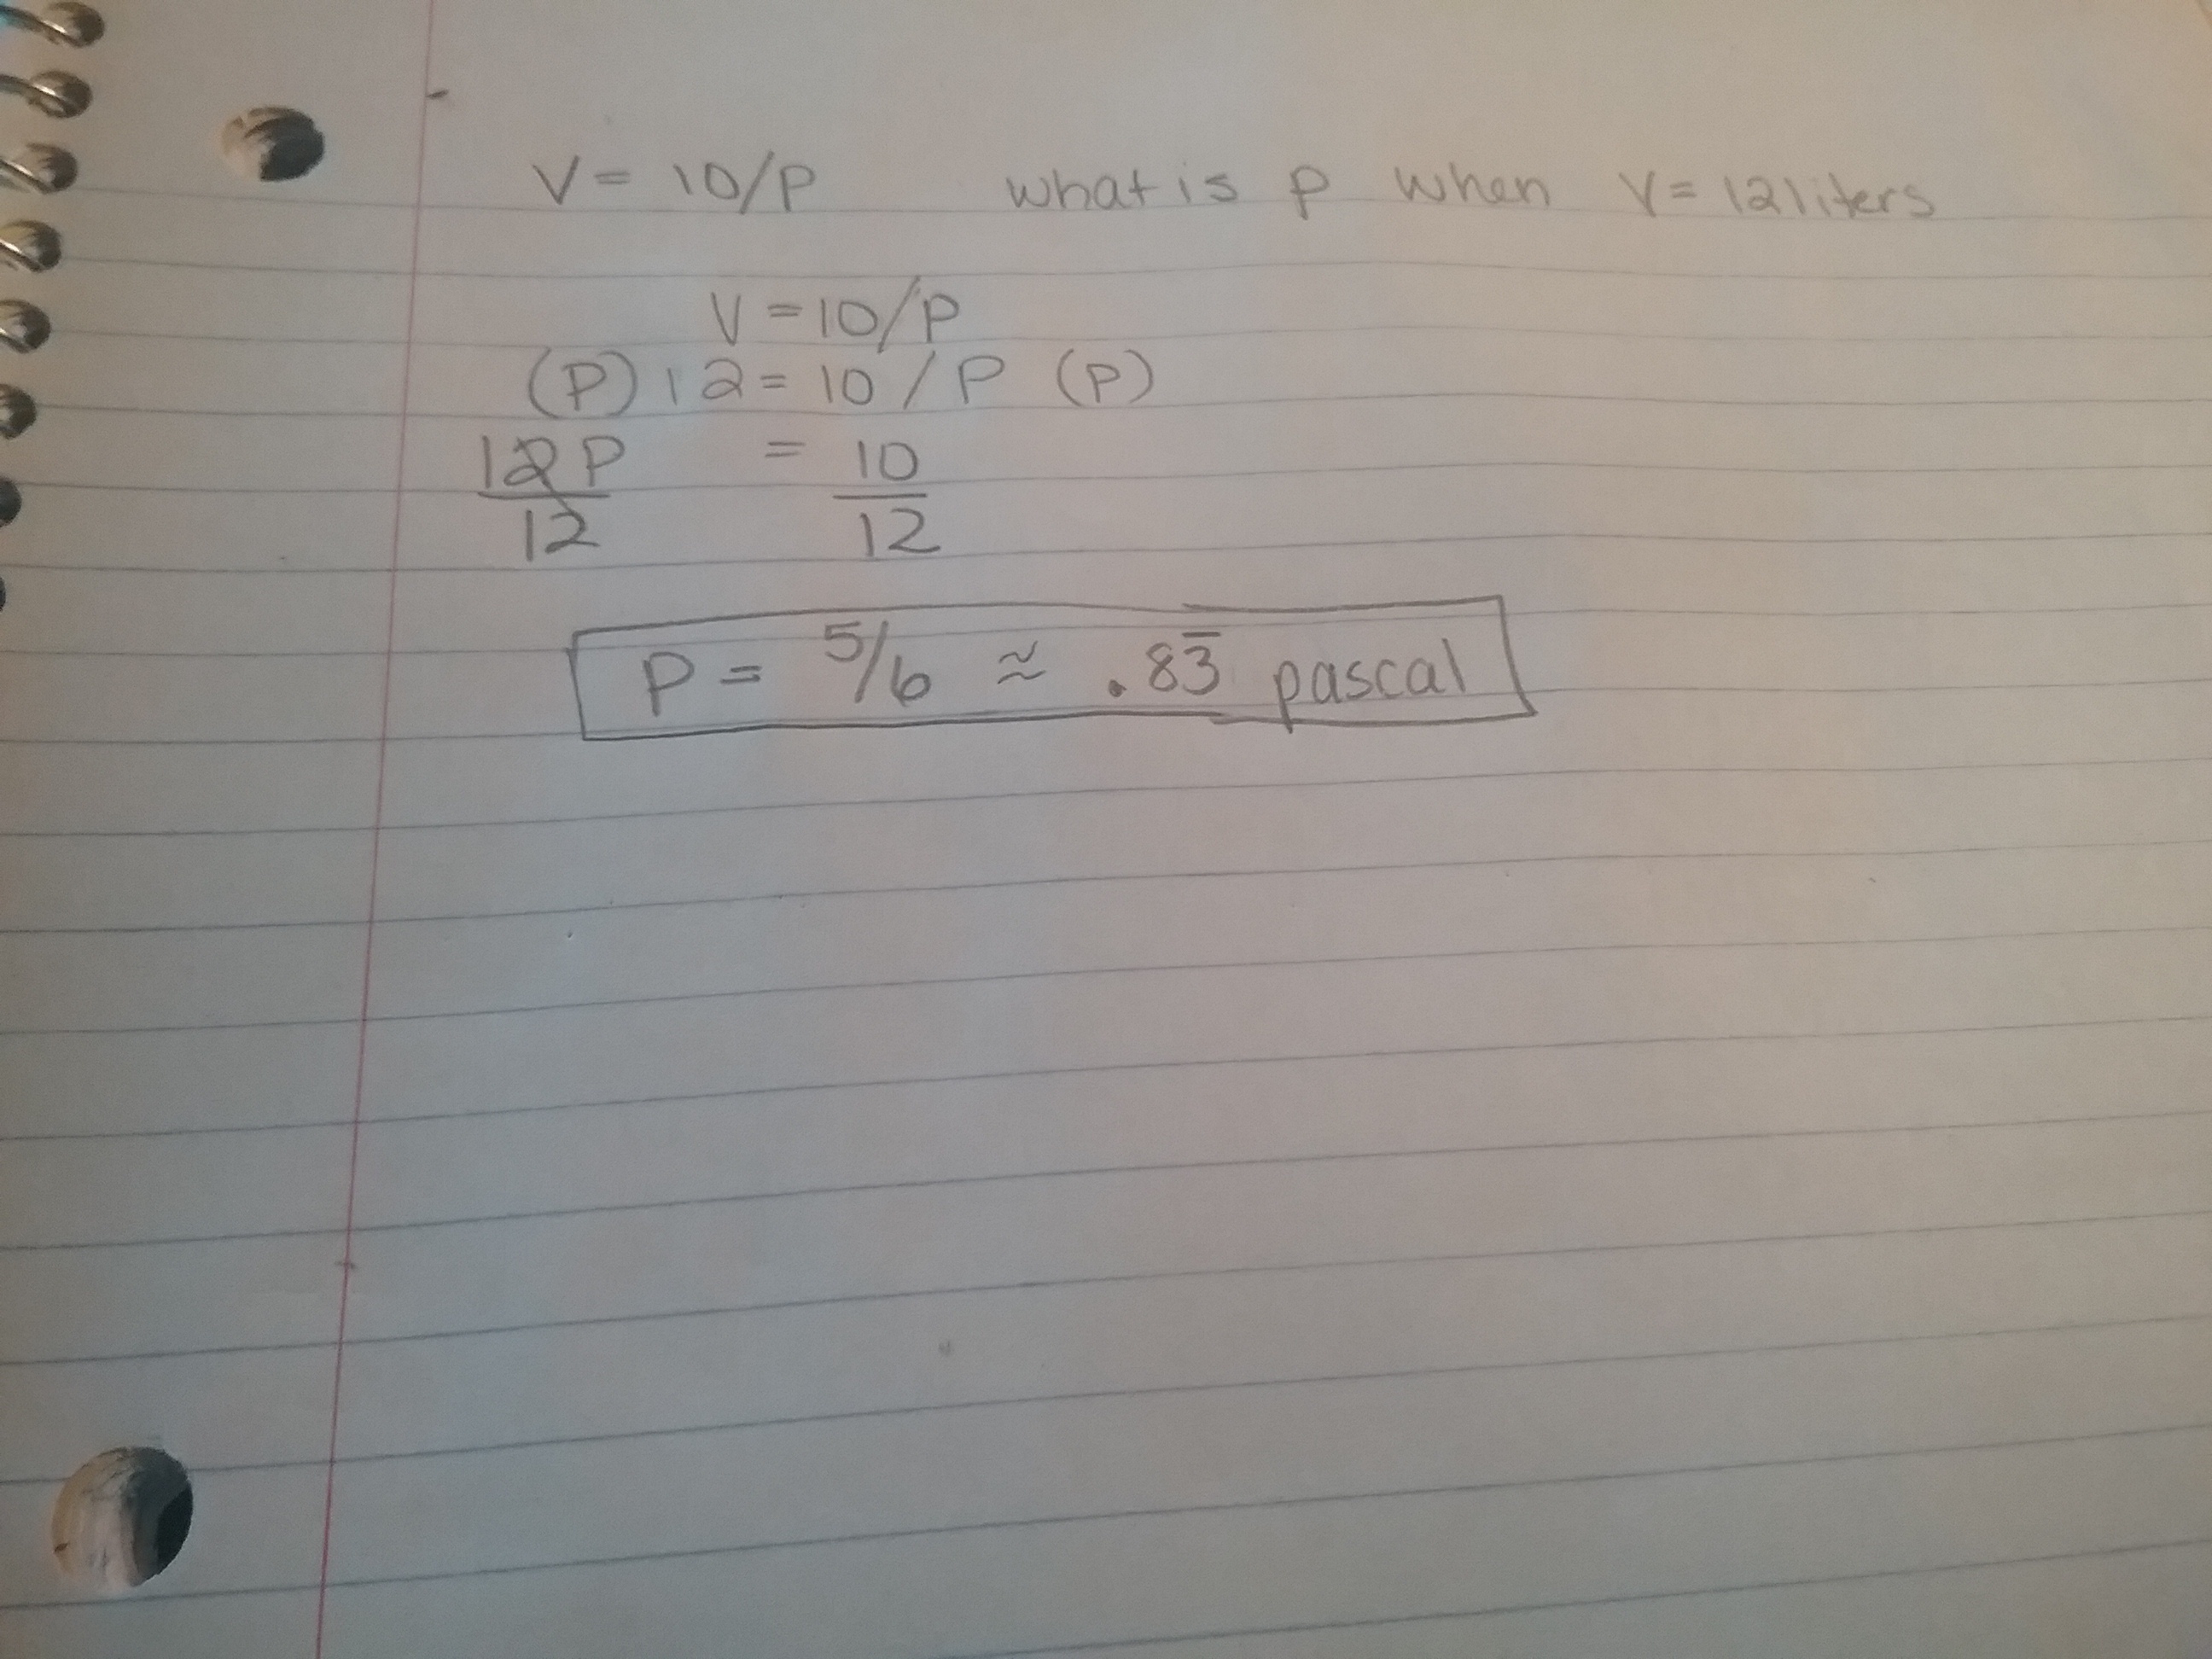 V = 10/P what is p when V = 12 liters
V = 10/P
(P) 12 = 10 / P (P)
12P = 10
12 12
P = 5/6 ≈ .83̅ pascal